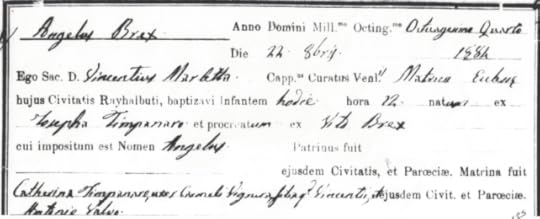 Angelus Brex Anno Domini Mill.mo Octing.mo Octuagesimo Quarto
Die 22 8bris 1884
Ego Sac. D. Vincentius Capp.us Curatus Ven.lis Matricis
hujus Civitatis Rayhalbuti, baptizavi Infantem hodie hora 12 natum ex
Josepha Timpanaro et procreatum ex Vito Brex
cui impositum est Nomen Angelus Patrinus fuit
ejusdem Civitatis, et Parœciæ. Matrina fuit
Catherina Timpanaro, uxor Carmeli filia Vincentii, ejusdem Civit. et Parœciæ.
Antonio Salvo